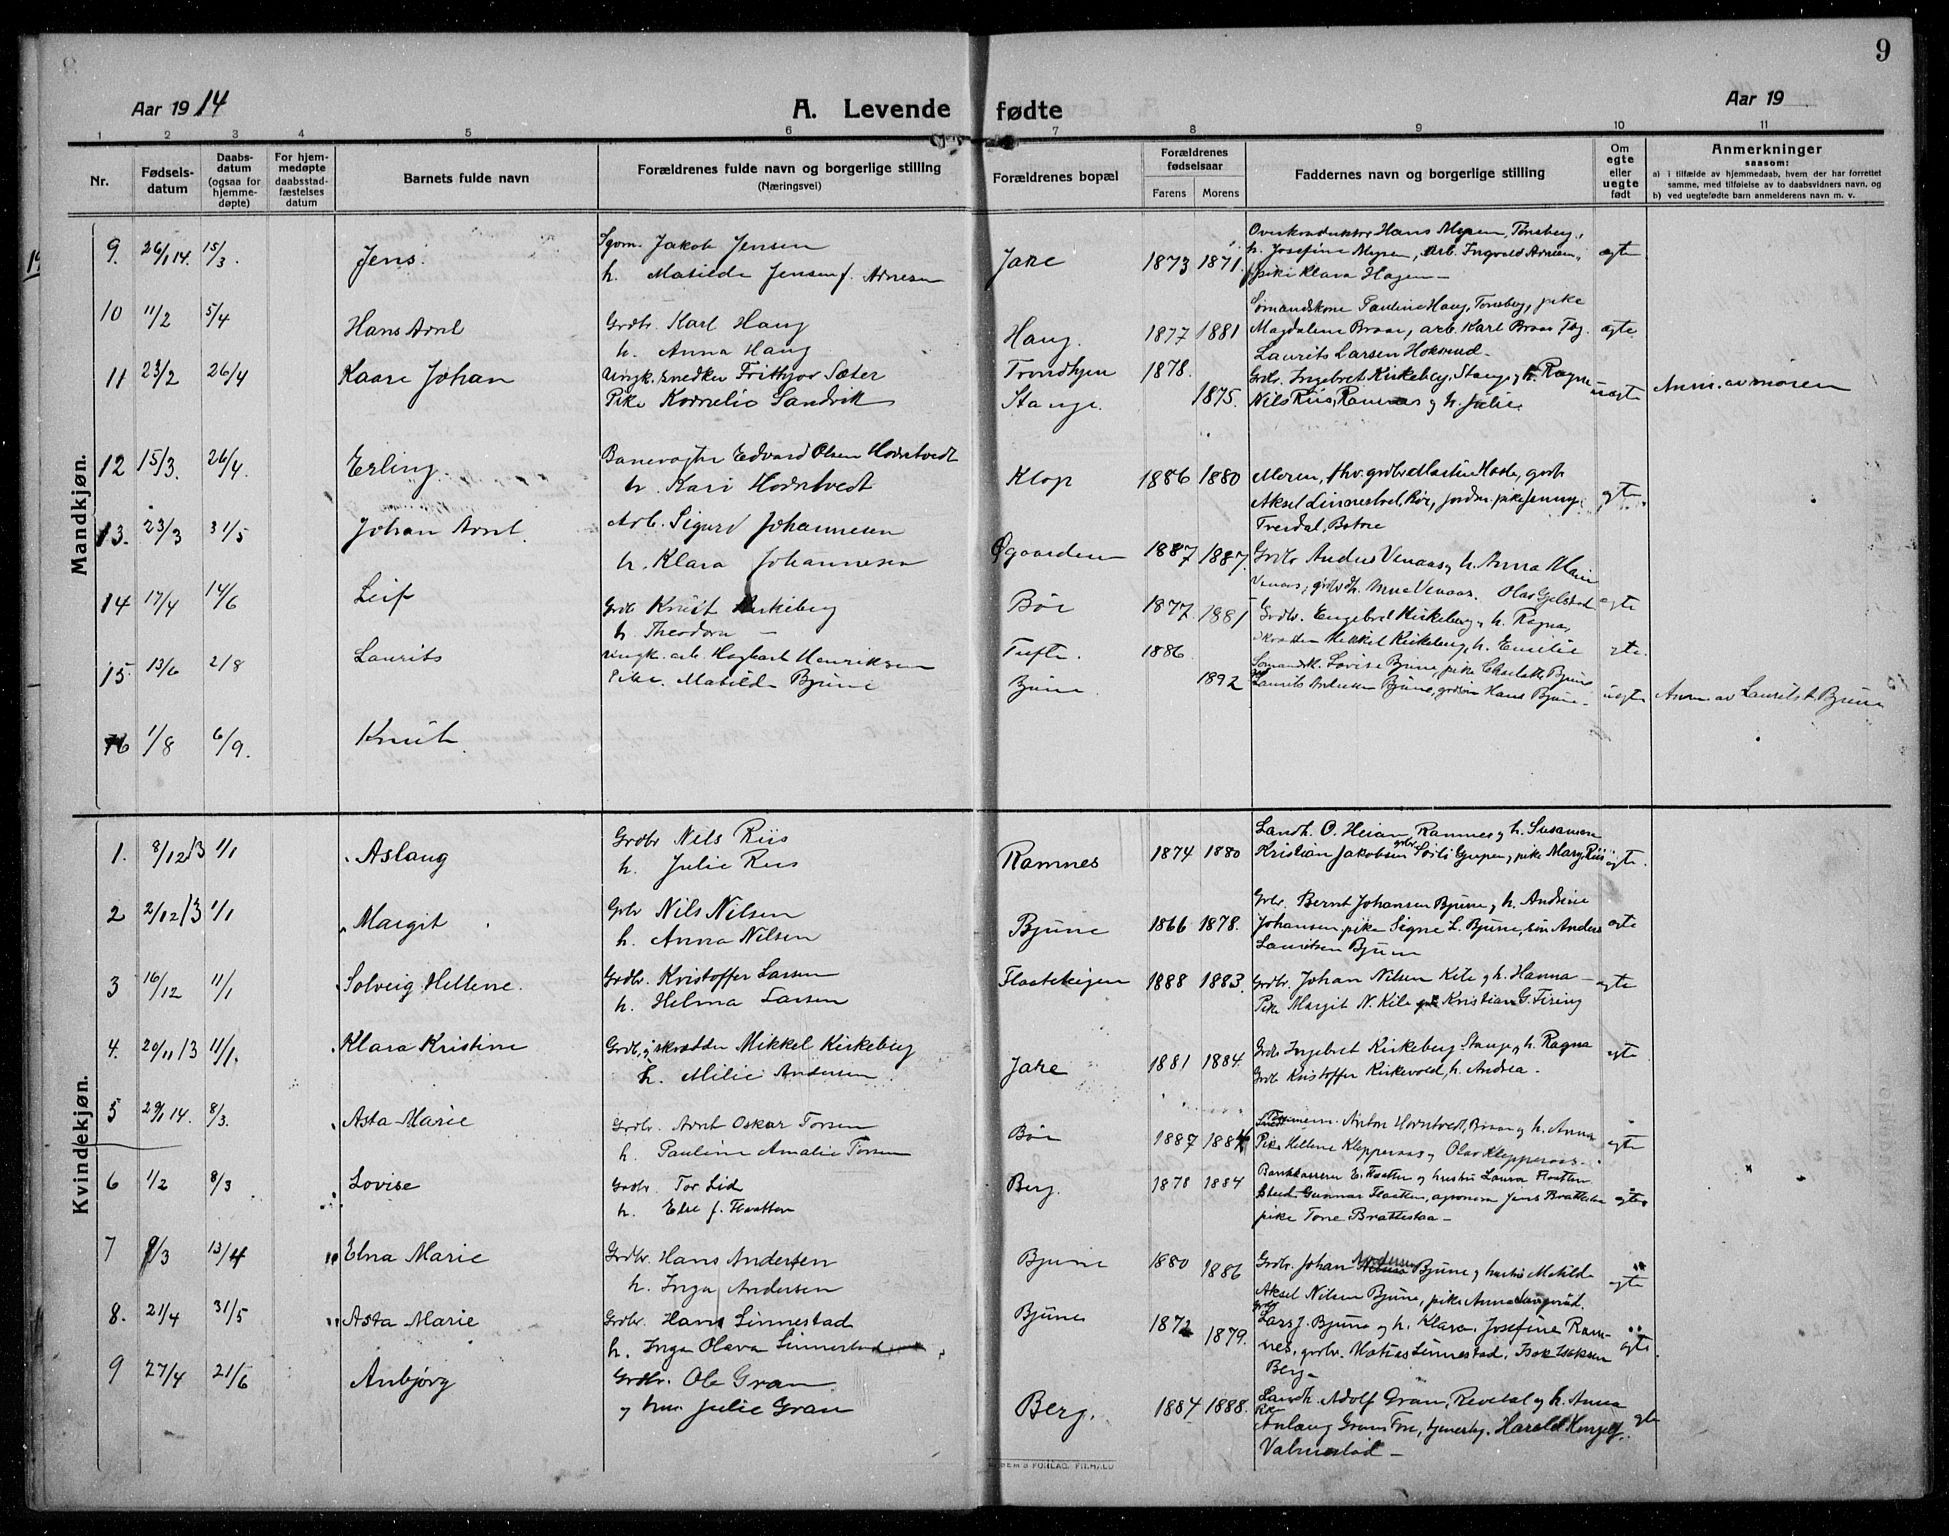 9
Aar 1914 A. Levende fødte Aar 19
1 2 3 4 5 6 7 8 9 10 11
Nr. Fødsels-datum Daabs-datum (ogsaa for hjemme-døpte) For hjem-medøpte daabsstad-fæstelses datum Barnets fulde navn Forældrenes fulde navn og borgerlige stilling (Næringsvei) Forældrenes bopæl Forældrenes fødselsaar Farens Morens Faddernes navn og borgerlige stilling Om egte eller uegte født Anmerkninger saasom:
a) i tilfælde av hjemmedaab, hvem der har forrettet samme, med tilføielse av to daabsvidners navn, og
b) ved uegtefødte barn anmelderens navn m. v.
Mandkjøn.
9. 26/1 14. 15/3. Jens. Jakob Jensen Jare 1873 1871. Overkonduktør Hans Myren, Tønsberg,
h. Matilde Jensen f. Arnesen h. Josefine Myren, arb. Ingvald Arnesen, egte
pike Klara Hagen
10 11/2 5/4 Hans Arnt Grdbr. Karl Haug Haug. 1877 1881 Sømandskone Pauline Haug, Tønsberg, pike
h. Anna Haug Magdalene Braar, arb. Karl Braar Tbg. egte
Laurits Larsen
11 23/2 26/4 Kaare Johan Ungk. snedker Frithjov Sæter Trondhjem 1878. Grdbr. Ingebret Kirkeberg, Stange, h. Ragna
Pike Kornelia Sandvik Stange. 1875. Nils Riis, Ramnes og h. Julie. uegte Anm. av moren
12 15/3. 26/4. Erling. Banevogter Edvard Olsen Horntvedt Klop 1886 1880 Moren, fhv. grdbr Martin
h. Kari Horntvedt Aksel Linnestad, pike Jenny egte
13. 23/3 31/5 Johan Arnt. Arb. Sigurd Johannesen Øgaarden 1887 1887. Grdbr Anders Venaas og h. Anna Marie
h. Klara Johannesen Venaas, Olav Gjelstad egte
14 17/4 14/6 Leif Grdb Knut Kirkeberg Bøe 1877 1881 Grdbr. Engebret Kirkeberg, h. Ragna,
h. Theodora — Mikkel Kirkeberg, h. Emilie
15. 13/6 2/8 Laurits Ungk. arb. Hagbart Henriksen Tufte. 1886. Sømandsk. Lovise Bjune, pike Charlotte Bjune
Pike. Matilde Bjune Bjune. 1892 Laurits Bjune, Hans Bjune. uegte Anm av Laurits Bjune
16 1/8 6/9. Knut.
Kvindekjøn.
1. 8/12 13 1/1 Aslaug Grdbr Nils Riis Ramnes 1874 1880 Landh. O. Heian, Ramnes og h. Susanna
h. Julie Riis Kristian Jakobsen, pike Mary Riis egte.
2 2/12 13 1/1 Margit Grbr Nils Nilsen Bjune 1866 1878. Grbr. Bernt Johansen Bjune og h. Andrine
h. Anna Nilsen Johansen pike Signe L. Bjune, søn Anders egte
Lauritsen Bjune
3 16/12 11/1 Solveig Hellene. Grdbr. Kristoffer Larsen 1888 1883. Grdbr. Johan Nilsen Kile og h. Hanna — egte
h. Helma Larsen Pike Margit N. Kile Kristian G. Firing
4. 20/11 13 11/1. Klara Kristine Grdb. skrædder Mikkel Kirkeberg Jare 1881 1884. Grdb Ingebret Kirkeberg Stange, h. Ragna egte
h. Milie Andersen Grdb Kristoffer Kirkevold, h. Andrea.
5 29/1 14. 8/3. Asta Marie Grdbr. Arnt Oskar Torsen Bøe 1887 1884 Anton Horntvedt, Braar og h. Anna
h. Pauline Amalie Torsen Pike Hellene Klepperaas og Olav Klepperaas. egte
6 1/2 8/3 Lovise Grdbr. Tor Lid Berg. 1878 1884 Bankkasserer E. Flaatten og hustru Laura Flaatten
h. Else f. Flaatten Stud. Gunnar Flaatten, agronom Jens Brattestaa egte
pike Tone Brattestaa —
7 8/3 13/4 Elna Marie Grdbr. Hans Andersen Bjune 1880 1886 Grdbr. Johan Andersen Bjune og hustru Matilde egte
h. Inga Andersen Aksel Nilsen Bjune, pike Anna
8. 21/4 31/5 Asta Marie Grdbr. Hans Linnestad Bjune 1872 1879. Grdbr Lars J. Bjune og h. Klara. Josefine Ram-
h. Inga Olava Linnestad nes, grdbr. Matias Linnestad, Isak Isaksen egte.
Berg
9 27/4 21/6 Anbjørg Grdbr. Ole Gran Berg. 1884 1888. Landh. Adolf Gran, Revetal og h. Anna
og hu. Julie Gran Pk. Anlaug Gran, Harald egte
Valmestad —
FORLAG, FILHALD